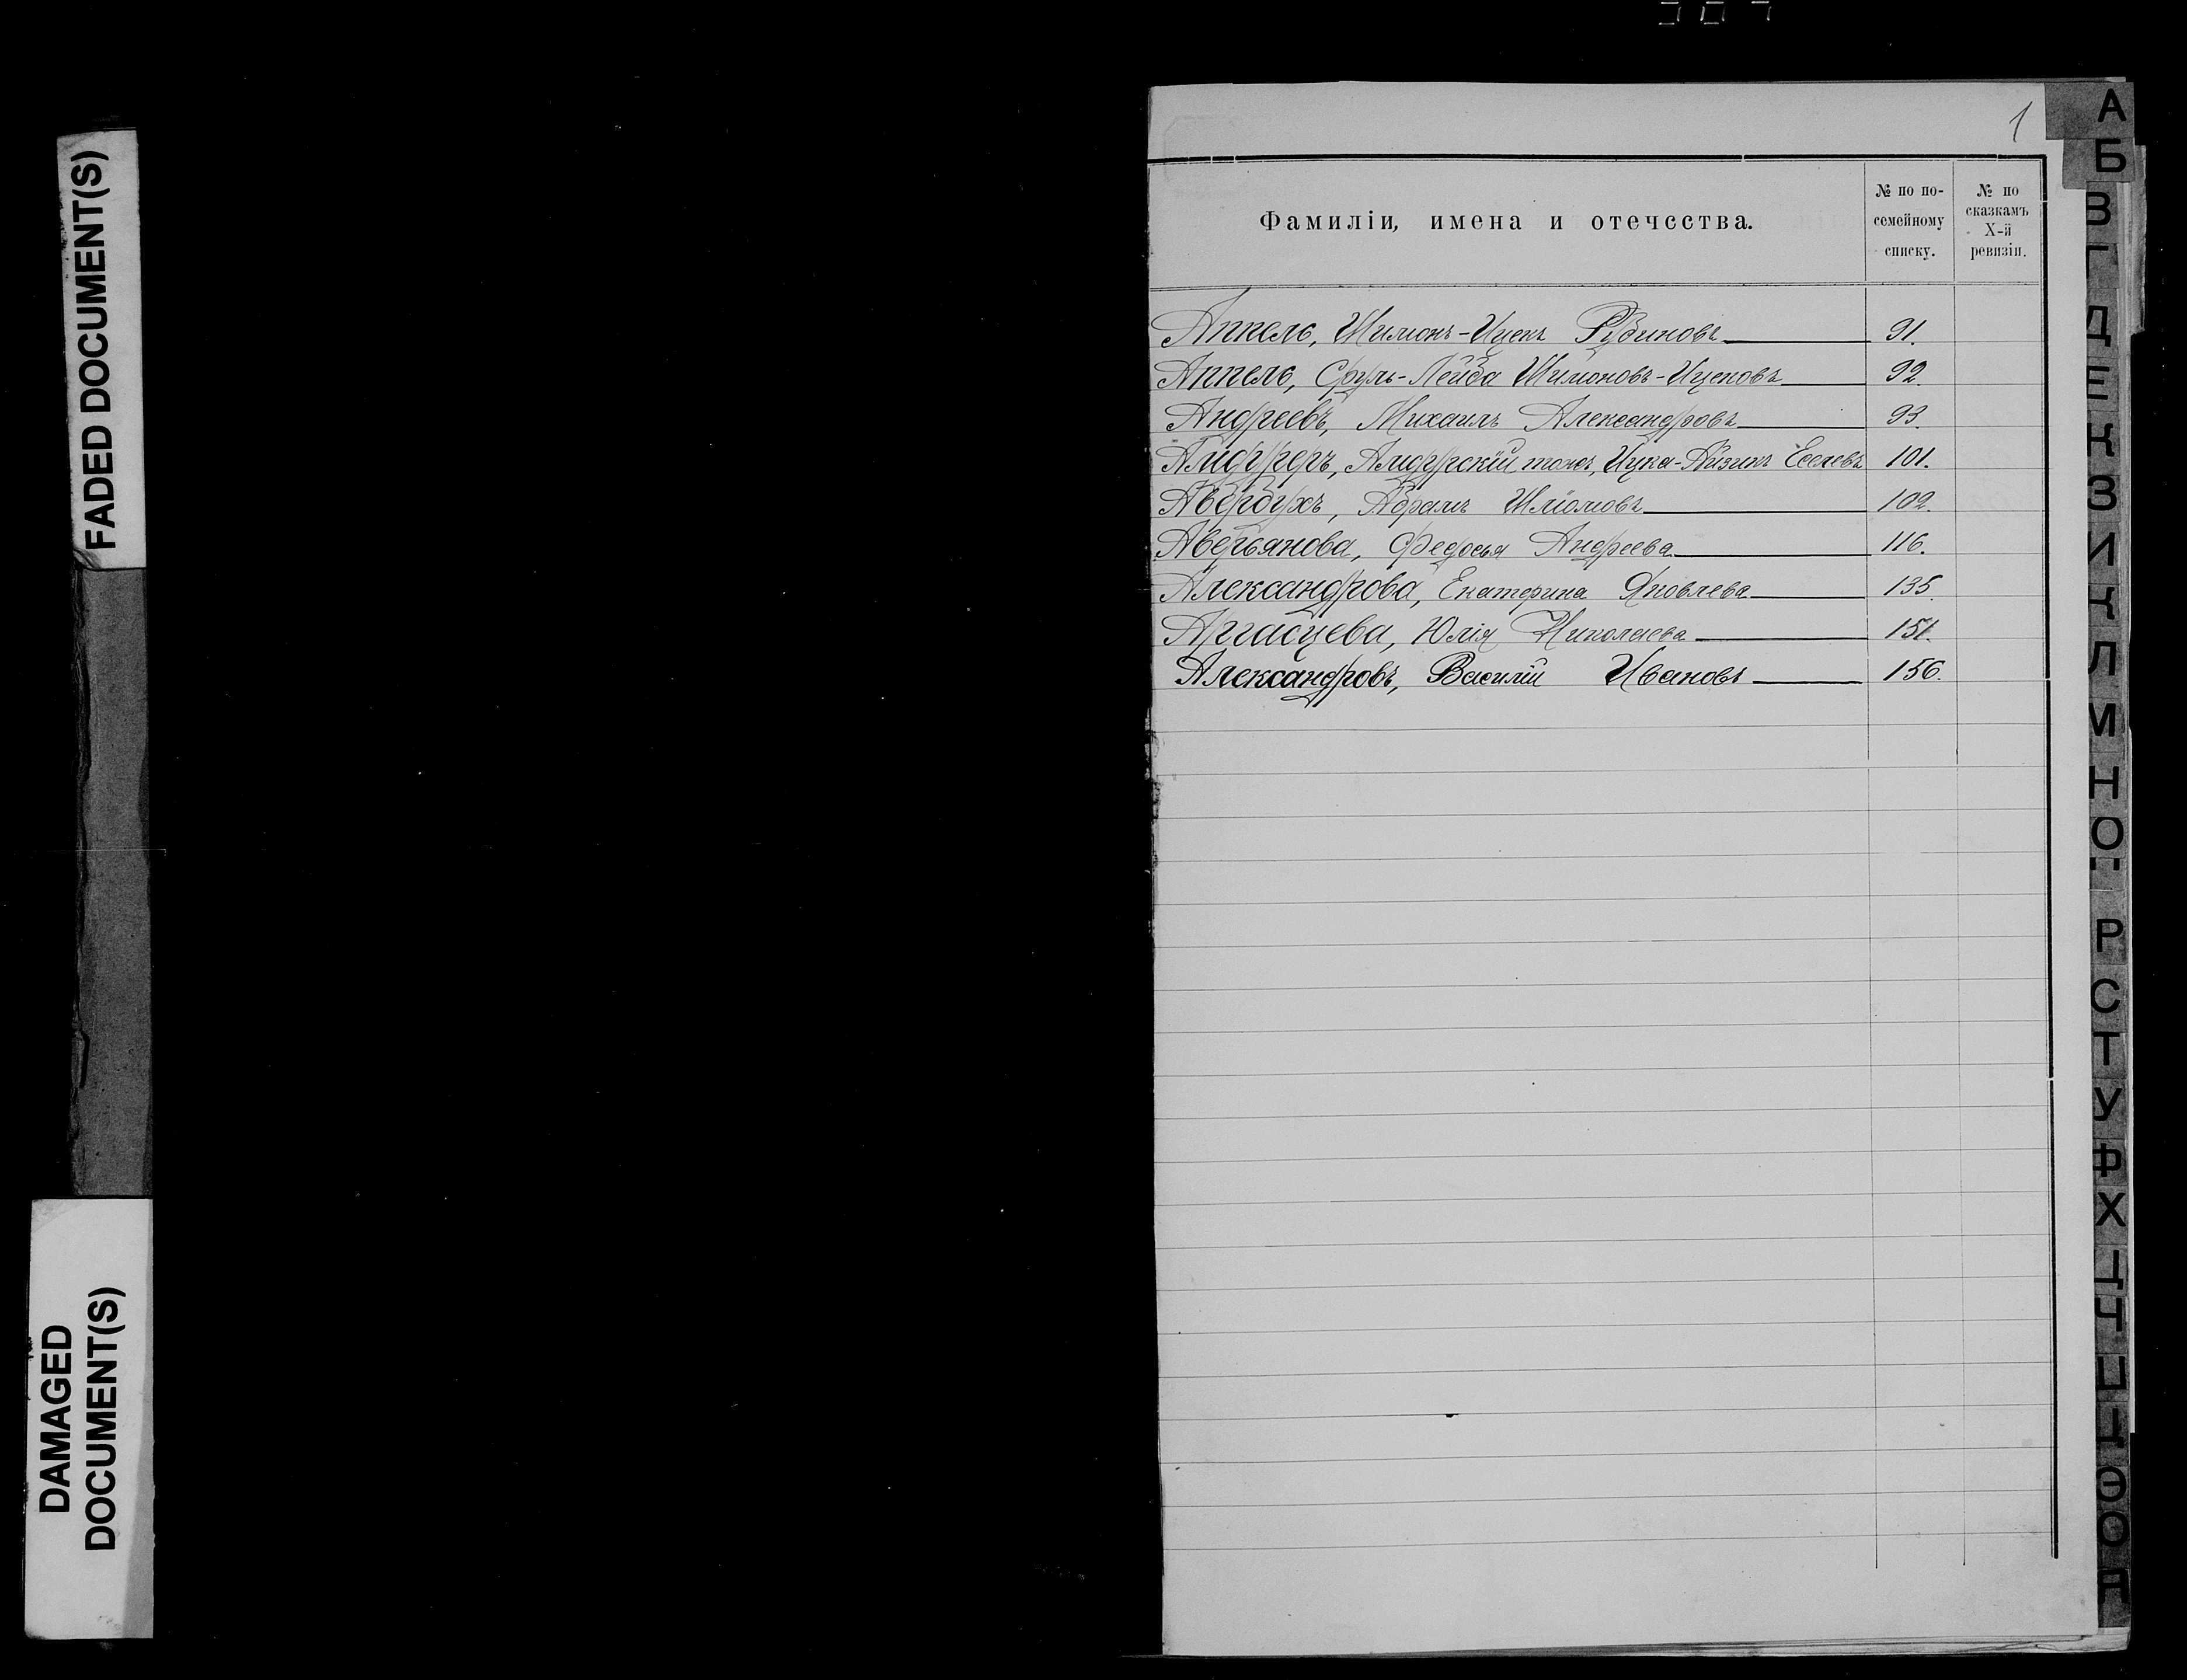 FADED DOCUMENT(S)
DAMAGED
DOCUMENT(S)
1
Фамиліи, имена и отечества.
№ по по-
семейному
списку.
№ по
сказкамъ
X-й
ревизіи.
Аппель, Шимонъ-Ицекъ Рубиновъ 91.
Аппель, Сруль-Лейба Шимоновъ-Ицековъ 92.
Андреевъ, Михаилъ Александровъ 93.
тоже, Ицка-Айзикъ 101.
Авербухъ, Абрамъ Шліомовъ 102.
Аверьянова, Федосья Андреева 116.
Александрова, Екатерина Яковлева 135.
Юлія Николаева 151.
Александровъ, Василій Ивановъ 156.
А
Б
В
Г
Д
Е
З
Л
М
Н
О
Р
С
Т
У
Ф
Х